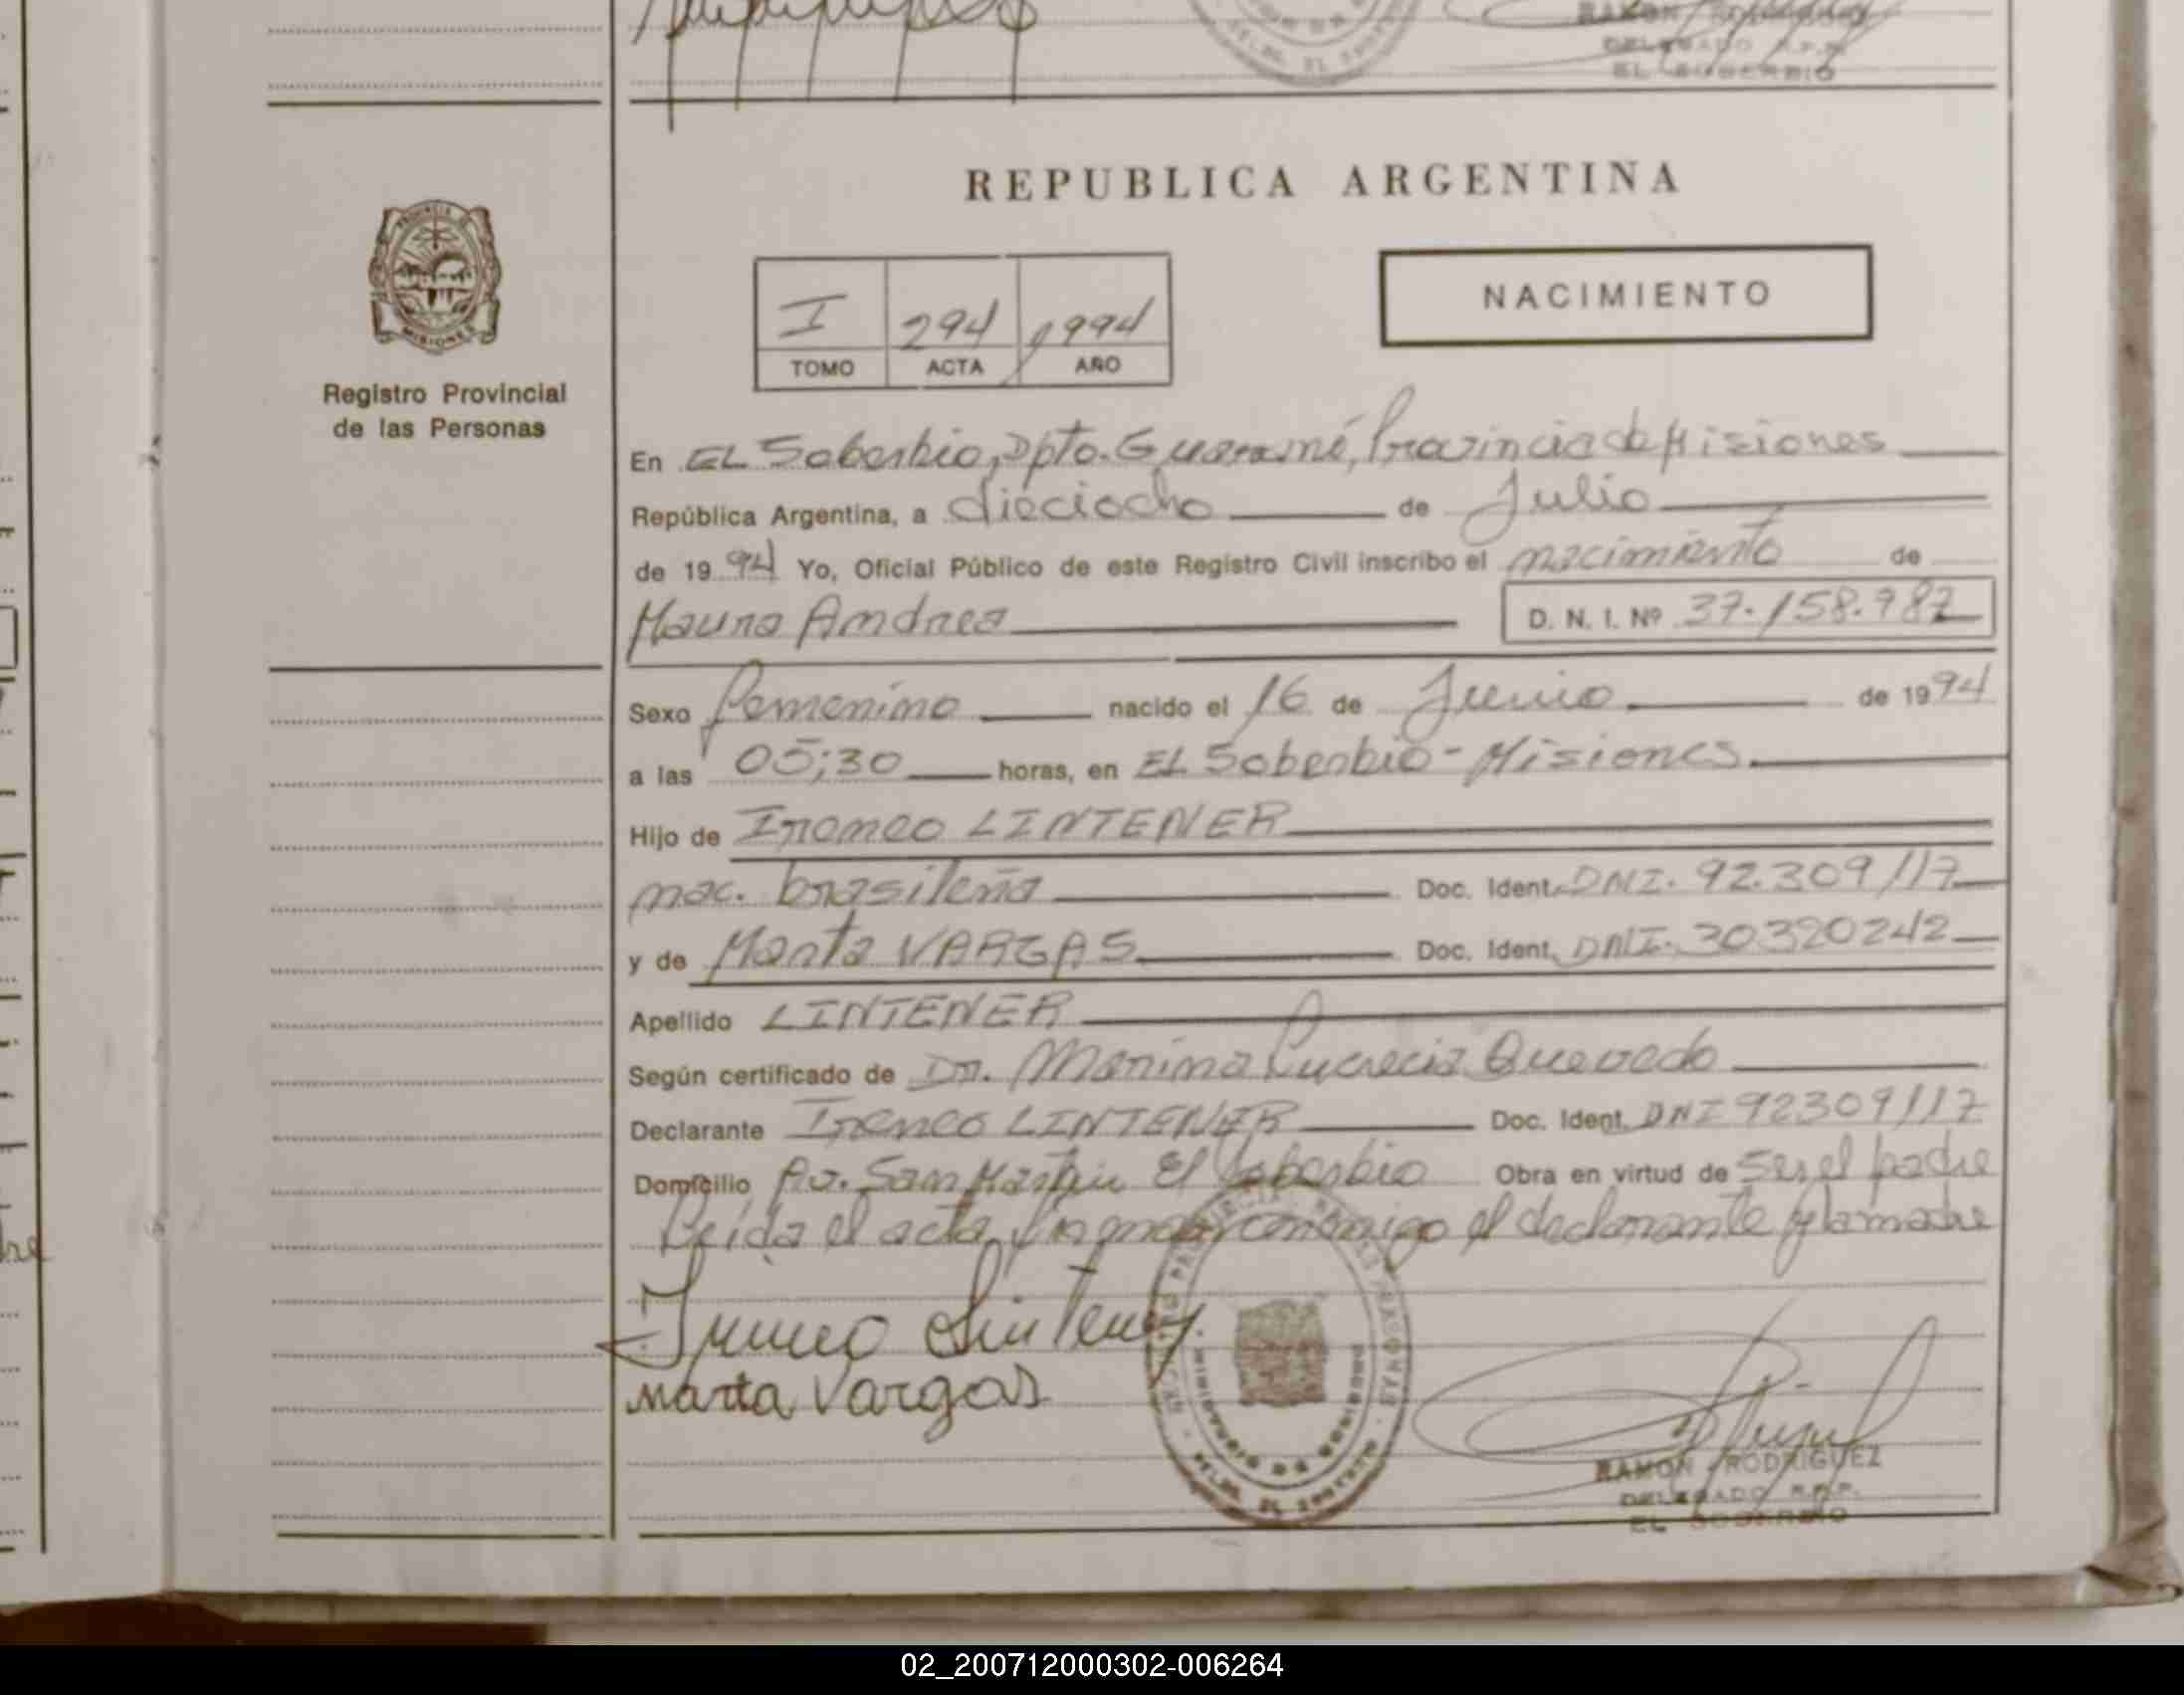 RAMON RODRIGUEZ
DELEGADO R.P.P.
EL SOBERBIO
REPUBLICA ARGENTINA
PROVINCIA DE
MISIONES
Registro Provincial
de las Personas
I 294 1994
TOMO ACTA AÑO
NACIMIENTO
En EL Soberbio, Dpto. Guaraní, Provincia de Misiones
República Argentina, a dieciocho de Julio
de 1994 Yo, Oficial Público de este Registro Civil inscribo el nacimiento de
Maura Andrea D. N. I. Nº 37.158.987
Sexo femenino nacido el 16 de Junio de 1994
a las 05;30 horas, en EL Soberbio - Misiones
Hijo de Ireneo LINTENER
nac. brasileña Doc. Ident. DNI. 92.309117
y de Marta VARGAS Doc. Ident. DNI. 30320242
Apellido LINTENER
Según certificado de Dr. Marina Lucrecia Quevedo
Declarante Ireneo LINTENER Doc. Ident. DNI 92309117
Domicilio Av. San Martin El Soberbio Obra en virtud de Ser el padre
Leída el acta, firman conmigo el declarante y la madre
Marta Vargas
MINISTERIO DE GOBIERNO
RAMON RODRIGUEZ
DELEGADO R.P.P.
EL SOBERBIO
02_200712000302-006264